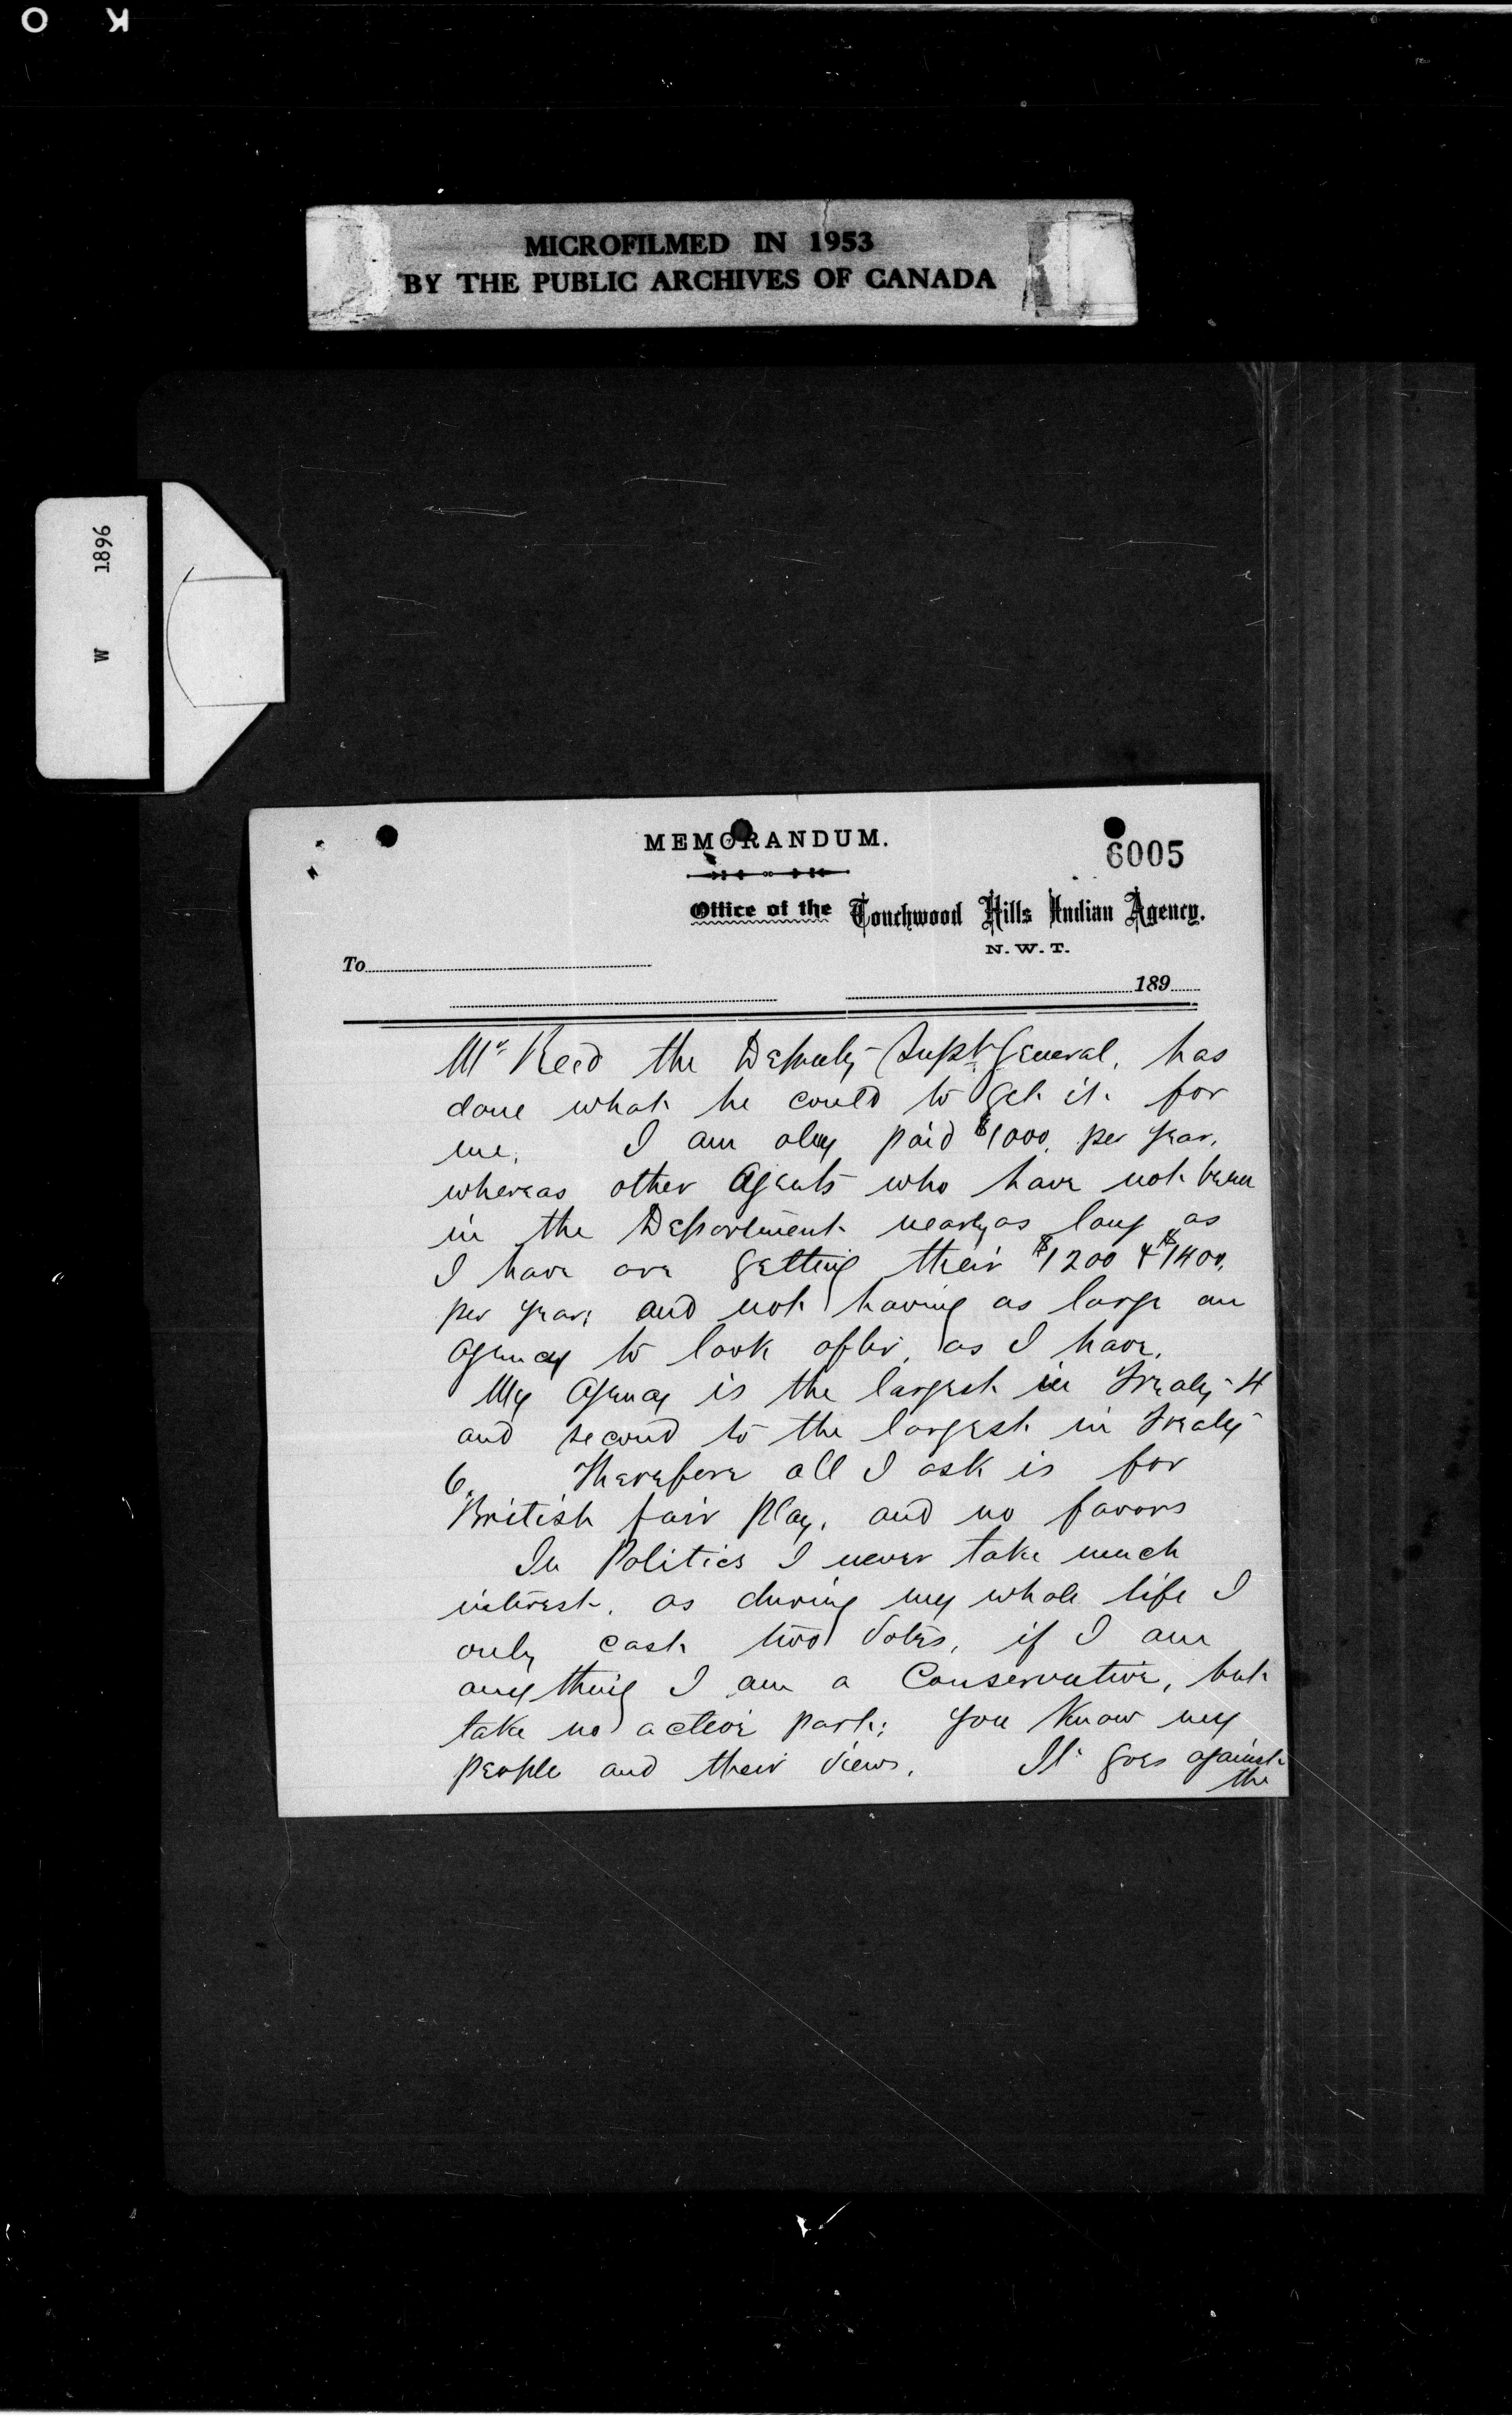 O K
MICROFILMED IN 1953
BY THE PUBLIC ARCHIVES OF CANADA
W 1896
MEMORANDUM.
6005
Office of the Touchwood Hills Indian Agency.
N. W. T.
To
189
Mr Reed the Deputy Supt General, has
done what he could to get it for
me. I am only paid $1000. per year,
whereas other Agents who have not been
in the Department nearly as long as
I have are getting their $1200 & $1400.
per year, and not having as large an
Agency to look after, as I have.
My Agency is the largest in Treaty 4
and second to the largest in Treaty
6. Therefore all I ask is for
British fair play, and no favors
In Politics I never take much
interest, as during my whole life I
only cast two votes, if I am
anything I am a Conservative, but
take no active part; you know my
people and their views. It goes against
the